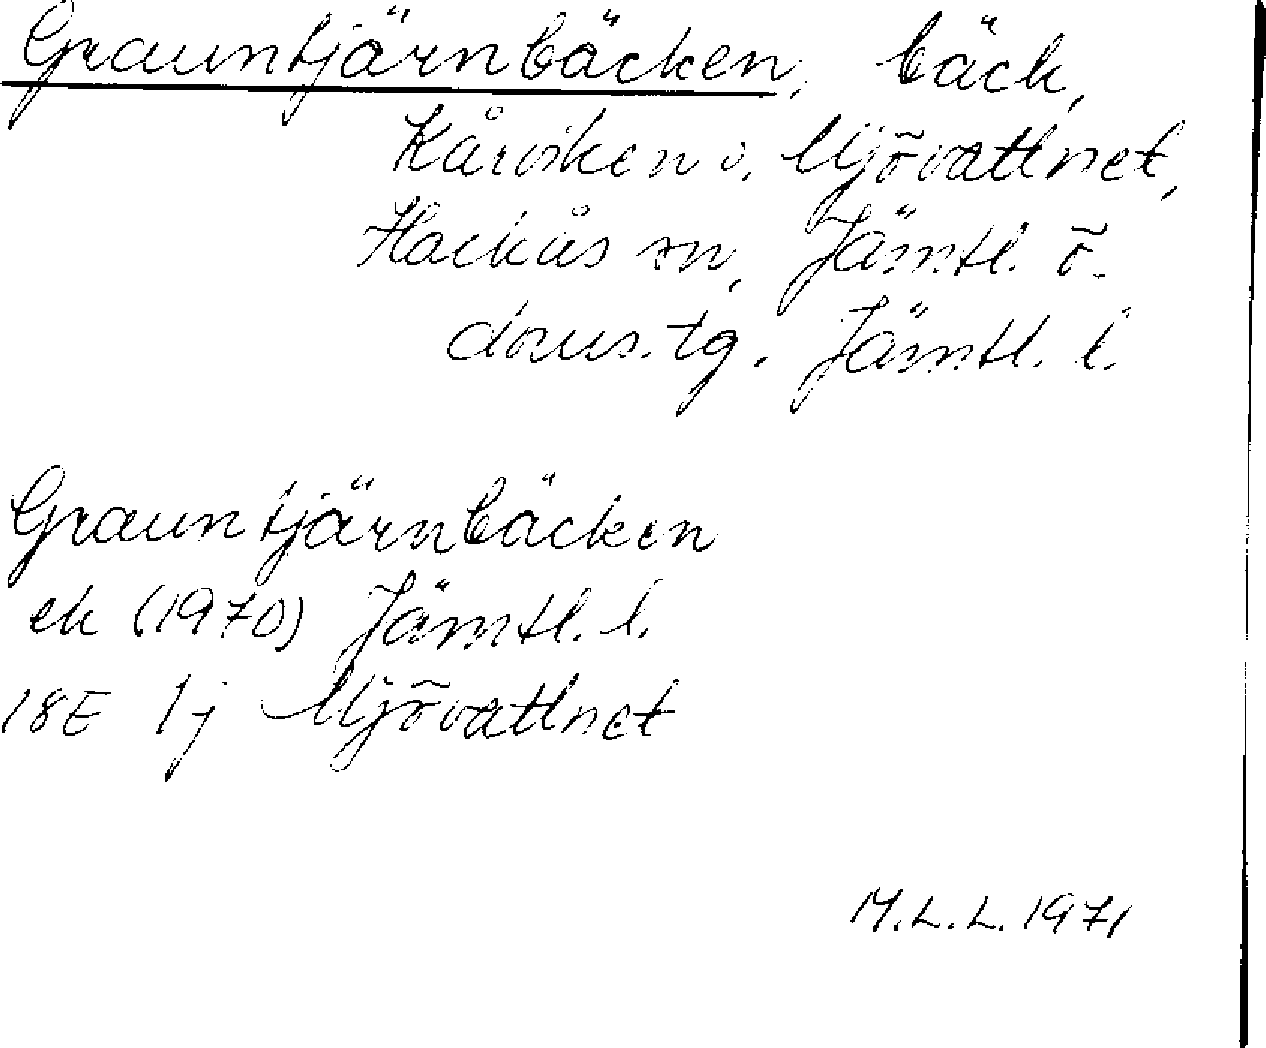 Grauntjärnbäcken, bäck,
Kårviken v. Mjövattnet,
Hackås sn, Jämtl. ö.
doms. tg. Jämtl. l.
Grauntjärnbäcken
ek (1970) Jämtl. l.
18E 1j Mjövattnet
M.L.L. 1971